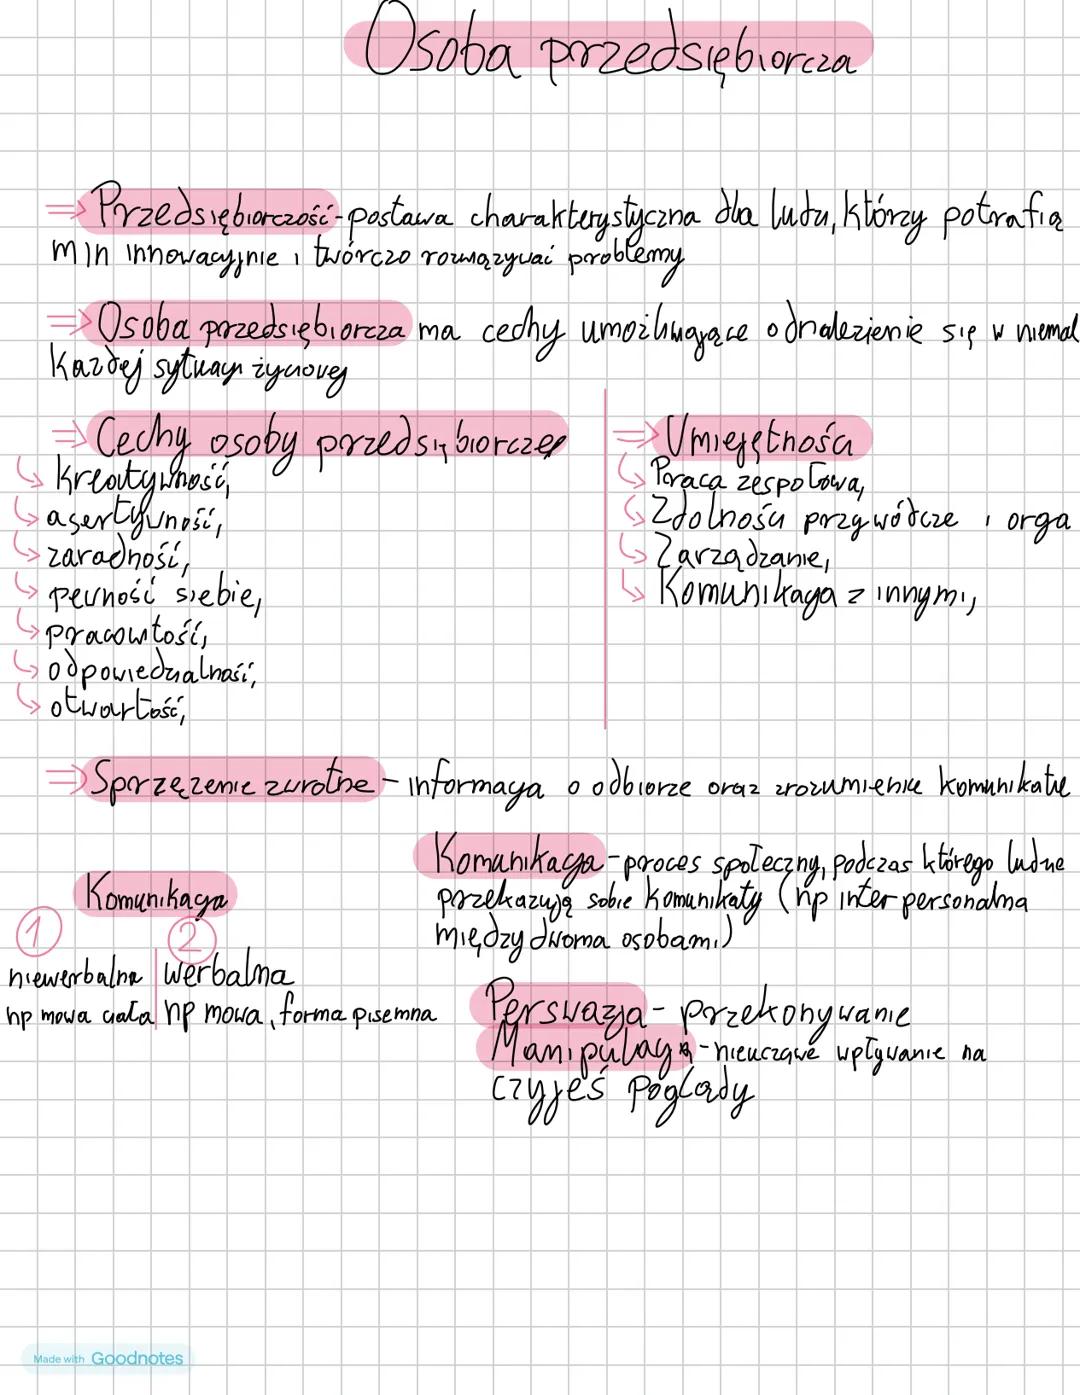 Osoba przedsiębiorcza
⇒ Przedsiębiorczość - postawa charakterystyczna dla ludzi, którzy potrafią
min innowacyjnie i twórczo rozwiązywać problemy
⇒ Osoba przedsiębiorcza ma cechy umożliwiające odnalezienie się w niemal
każdej sytuacji życiowej
⇒ Cechy osoby przedsiębiorczej
↳ kreatywność,
↳ asertywność,
↳ zaradność,
↳ pewność siebie,
↳ pracowitość,
↳ odpowiedzialność,
↳ otwartość,
⇒ Umiejętności
↳ Praca zespołowa,
↳ Zdolności przywódcze i orga
↳ Zarządzanie,
↳ Komunikacja z innymi,
⇒ Sprzężenie zwrotne - informacja o odbiorze oraz zrozumieniu komunikatu
Komunikacja - proces społeczny, podczas którego ludzie
przekazują sobie komunikaty (np interpersonalna
między dwoma osobami)
Komunikacja
1 2
niewerbalna werbalna
np mowa ciała np mowa, forma pisemna
Perswazja - przekonywanie
Manipulacja - nieuczciwe wpływanie na
czyjeś poglądy
Made with Goodnotes